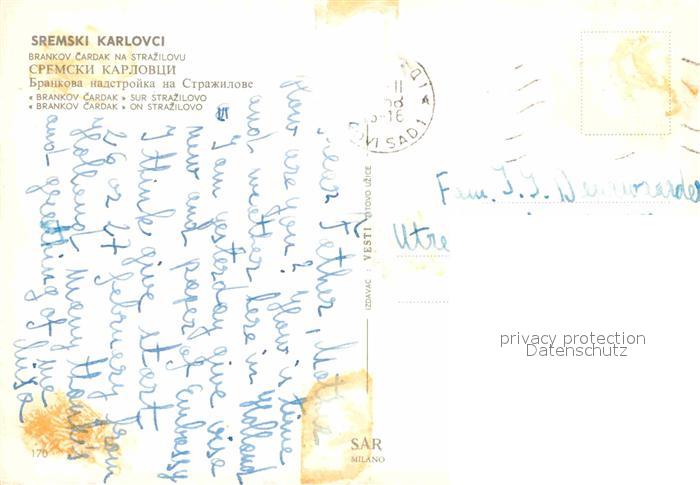 SREMSKI KARLOVCI
BRANKOV ČARDAK NA STRAŽILOVU
СРЕМСКИ КАРЛОВЦИ
Бранкова надстройка на Стражилове
« BRANKOV ČARDAK » SUR STRAŽILOVO
« BRANKOV ČARDAK » ON STRAŽILOVO
Dear Father, Mother
How are you? How is time
and weather here in Holland
I am yesterday give vise
new and paper of Embassy
I think give start
26 or 27 februery from
Holland. Many thank's
and greething of me
170
IZDAVAČ : VESTI TITOVO UŽICE
NOVI SAD 1
Fam. J. J.
Utre
SAR
MILANO
privacy protection
Datenschutz